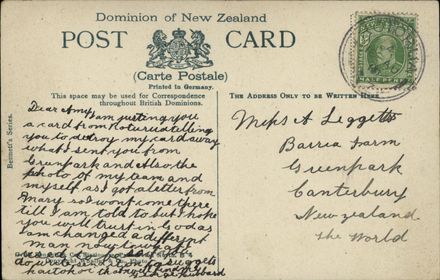 Dominion of New Zealand
POST CARD
(Carte Postale)
Printed in Germany.
This space may be used for Correspondence
throughout British Dominions.
THE ADDRESS ONLY TO BE WRITTEN HERE
Bennett's Series.
Dear Amy, I am justing you
a card from Rotorua telling
you to detroy my card away
what I sent you from
Greenpark and Also the
photo of my team and
myself as I got a letter from
Mary so I wont come there
till I am told to but I hope
you will trust in God as
I am changed a different
man now
Miss A Leggett
Barrea Farm
Greenpark
Canterbury
New zealand
the World
HALFPENNY